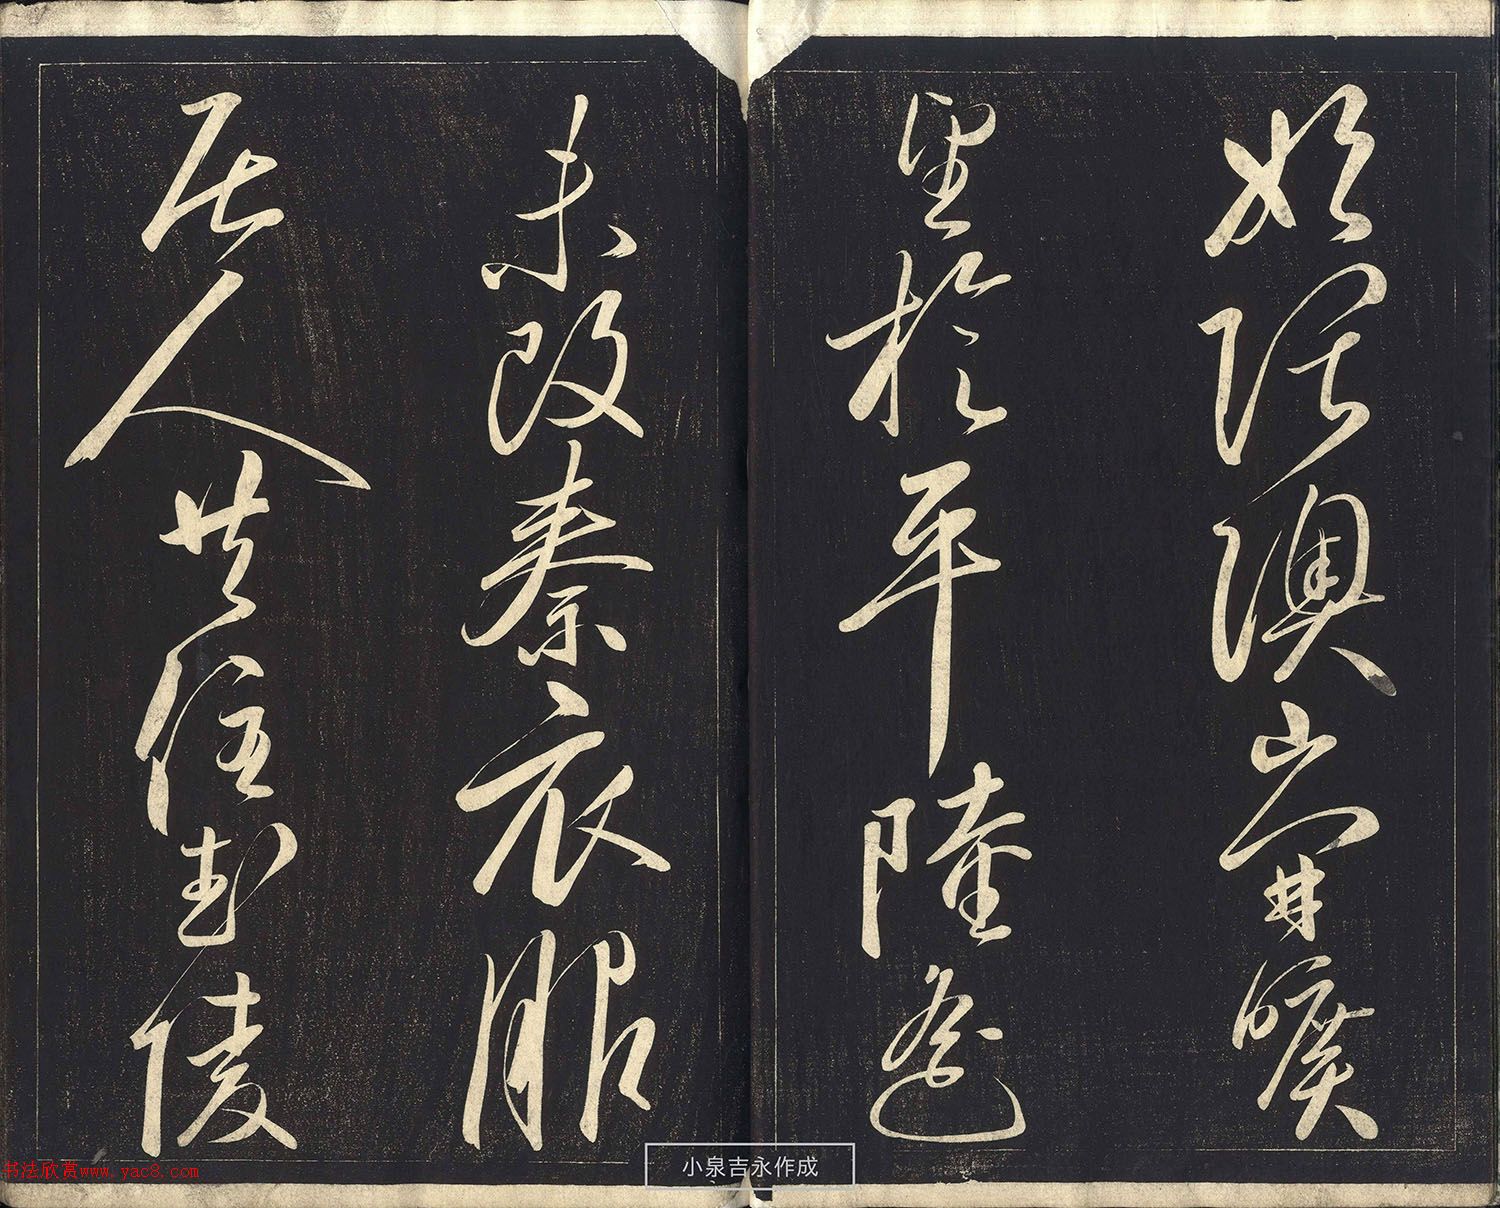 始隈隩山開曠
望於平陸遙
未改秦衣服
居人共住武陵
小泉吉永作成
书法欣赏www.yac8.com